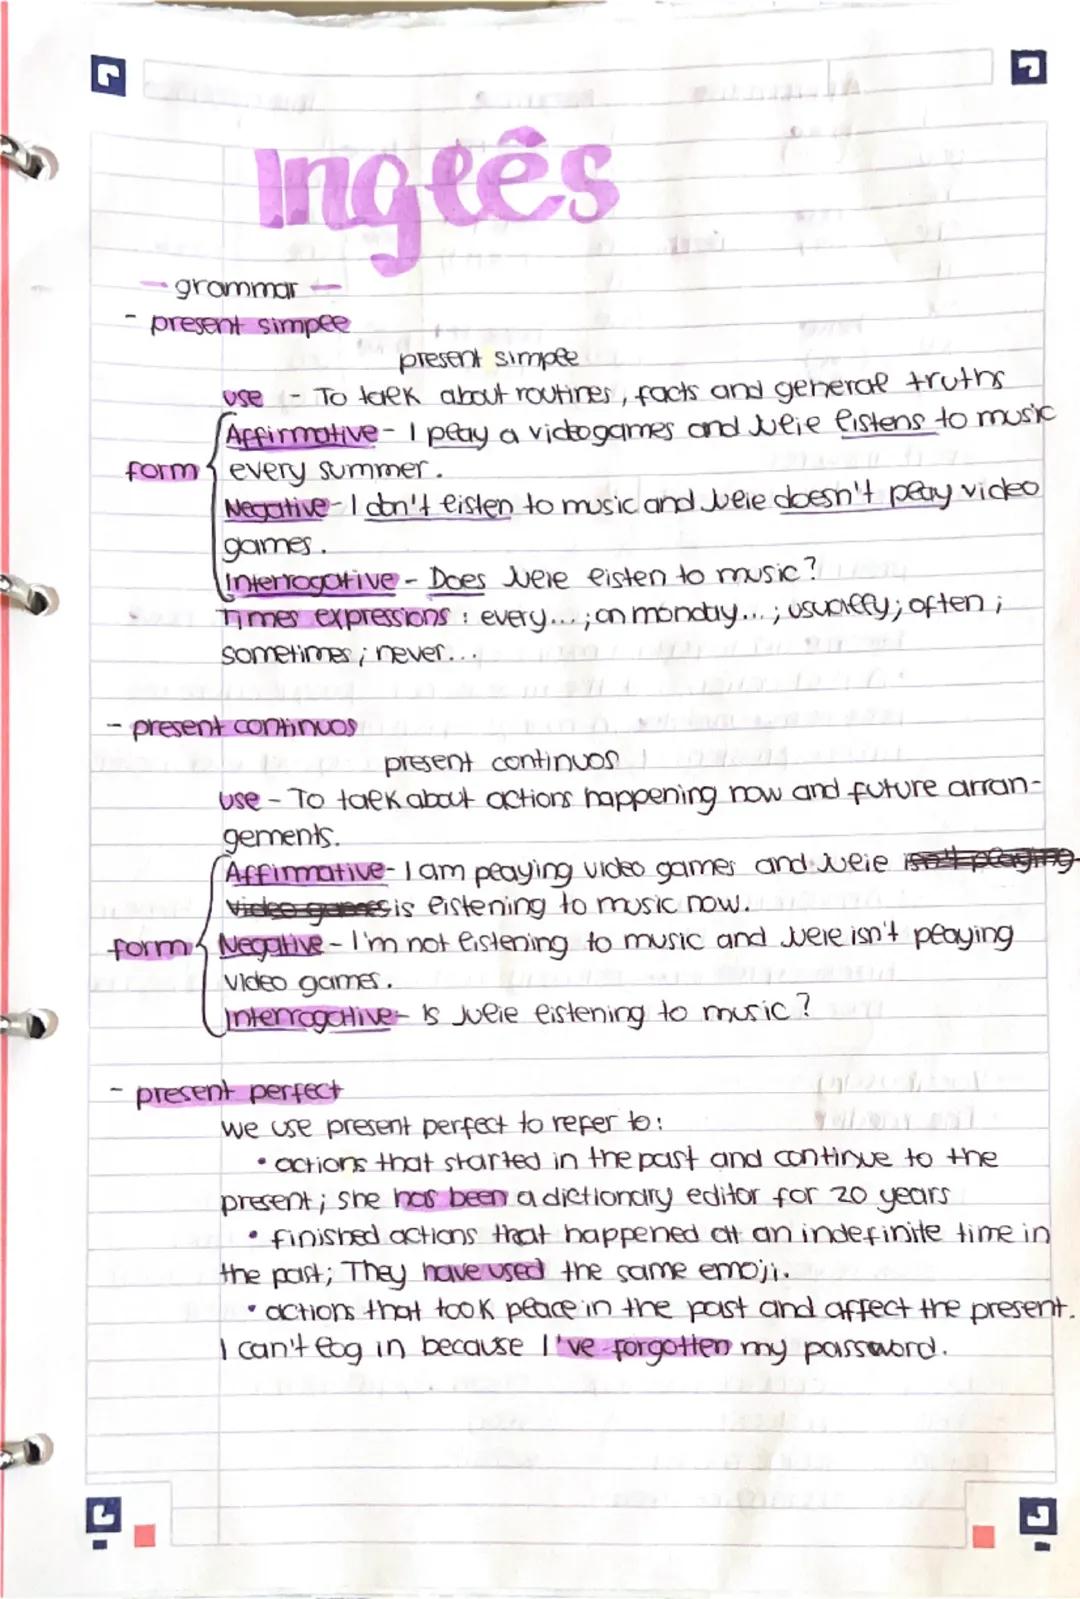 Inglês
- grammar -
- present simple
present simple
use - To talk about routines, facts and general truths
Affirmative - I play a videogames and Julie listens to music
form every summer.
Negative - I don't listen to music and Julie doesn't play video
games.
Interrogative - Does Julie listen to music?
Times expressions : every...; on monday...; usually; often;
sometimes; never...
- present continuos
present continuos
use - To talk about actions happening now and future arran-
gements.
Affirmative - I am playing video games and Julie isn't playing
video games is listening to music now.
form Negative - I'm not listening to music and Julie isn't playing
video games.
Interrogative - Is Julie listening to music?
- present perfect
we use present perfect to refer to:
• actions that started in the past and continue to the
present; She has been a dictionary editor for 20 years
• finished actions that happened at an indefinite time in
the past; They have used the same emoji.
• actions that took place in the past and affect the present.
I can't log in because I've forgotten my password.